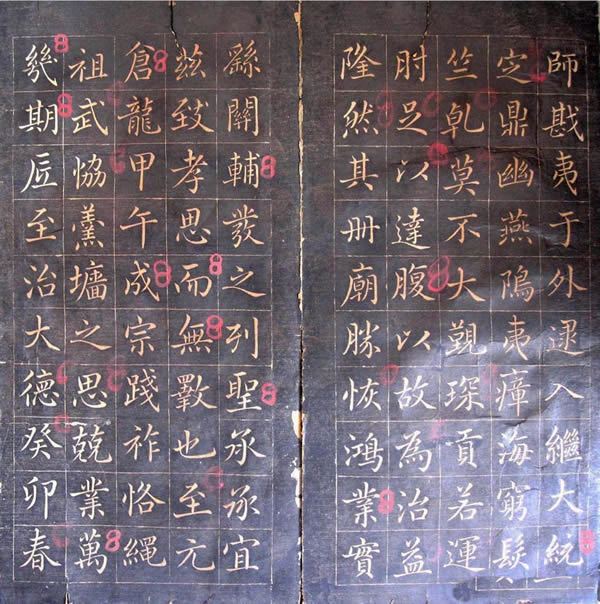 師戡夷于外逮入繼大統
定鼎幽燕隝夷瘴海窮髮
竺乹莫不大覲琛貢若運
肘足以達腹以故為治益
隆然其冊廟勝恢鴻業實
繇關輔發之列聖承承宜
茲致孝思而無斁也至元
倉龍甲午成宗踐祚恪繩
祖武恊羹墻之思兢業萬
幾期底至治大德癸卯春